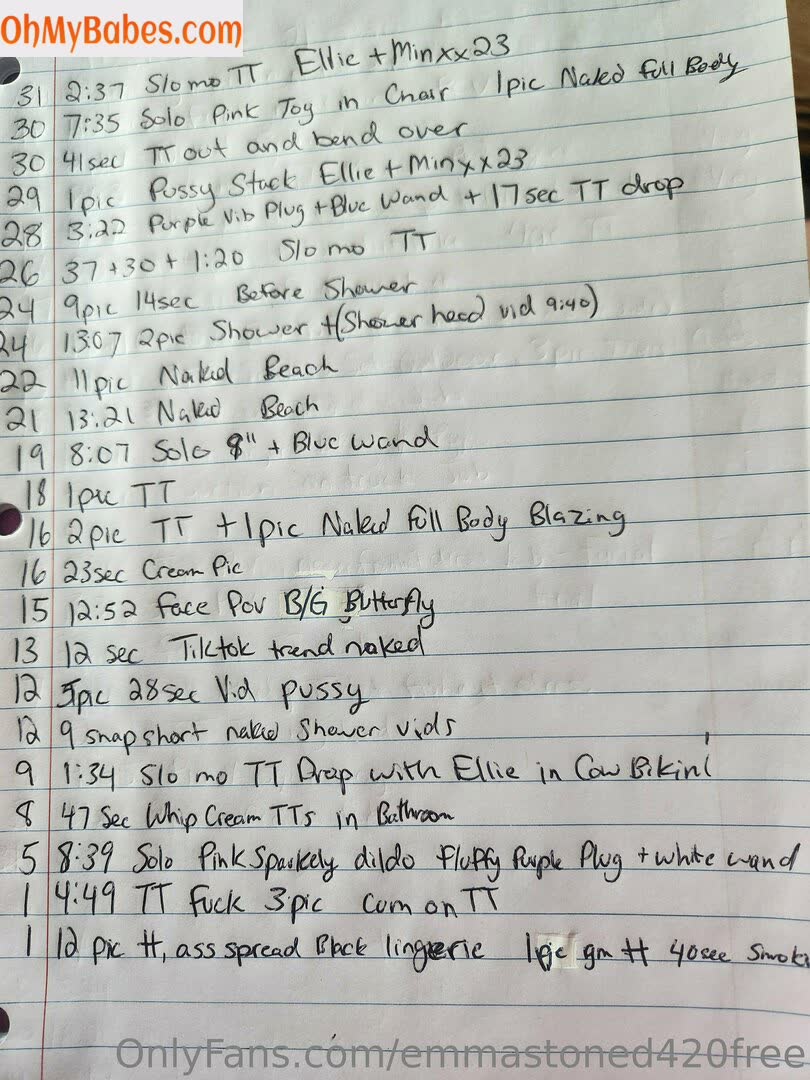 OhMyBabes.com
31 2:37 Slo mo TT Ellie + Minxx23
30 7:35 Solo Pink Toy in Chair 1pic Naked Full Body
30 41sec TT out and bend over
29 1pic Pussy Stack Ellie + Minxx23
28 3:22 Purple Vib Plug + Blue Wand + 17sec TT drop
26 37 + 30 + 1:20 Slo mo TT
24 9pic 14sec Before Shower
24 13:07 2pic Shower + (Shower head vid 9:40)
22 11pic Naked Beach
21 13:21 Naked Beach
19 8:07 Solo 8" + Blue wand
18 1pic TT
16 2pic TT + 1pic Naked Full Body Blazing
16 23sec Cream Pic
15 12:52 Face Pov B/G Butterfly
13 12 sec Tiktok trend naked
12 5pic 28sec Vid pussy
12 9 snap short naked Shower vids
9 1:34 Slo mo TT Drop with Ellie in Cow Bikini
8 47 Sec Whip Cream TTs in Bathroom
5 8:39 Solo Pink Sparkely dildo fluffy Purple Plug + white wand
1 4:49 TT Fuck 3pic Cum on TT
1 12 pic tt, ass spread Black lingerie 1pic gm tt 40sec
OnlyFans.com/emmastoned420free